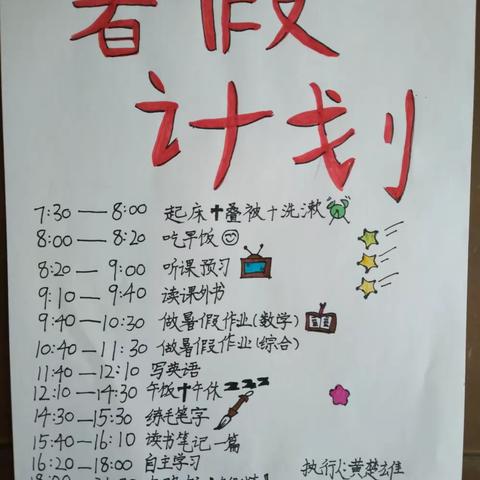 暑假
计划
7:30—8:00 起床+叠被+洗漱
8:00—8:20 吃早饭
8:20—9:00 听课预习
9:10—9:40 读课外书
9:40—10:30 做暑假作业(数学)
10:40—11:30 做暑假作业(综合)
11:40—12:10 写英语
12:10—14:30 午饭+午休 zzz
14:30—15:30 练毛笔字
15:40—16:10 读书笔记一篇
16:20—18:00 自主学习
执行人:黄楚雄